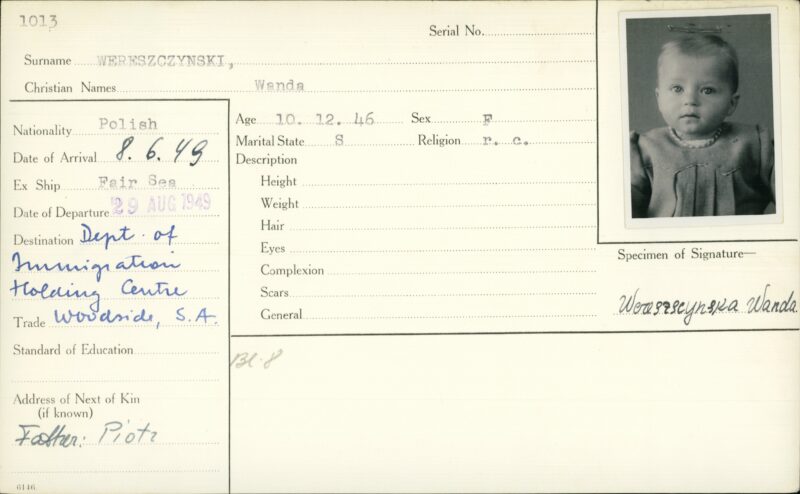 1013
Serial No.
Surname WERESZCZYNSKI,
Christian Names Wanda
Nationality Polish
Date of Arrival 8. 6. 49
Ex Ship Fair Sea
Date of Departure 29 AUG 1949
Destination Dept. of
Immigration
Holding Centre
Trade Woodside, S.A.
Standard of Education
Address of Next of Kin
(if known)
Father: Piotr
6146
Age 10. 12. 46 Sex F
Marital State S Religion r. c.
Description
Height
Weight
Hair
Eyes
Complexion
Scars
General
Bl. 8
Specimen of Signature—
Wereszczynska Wanda.